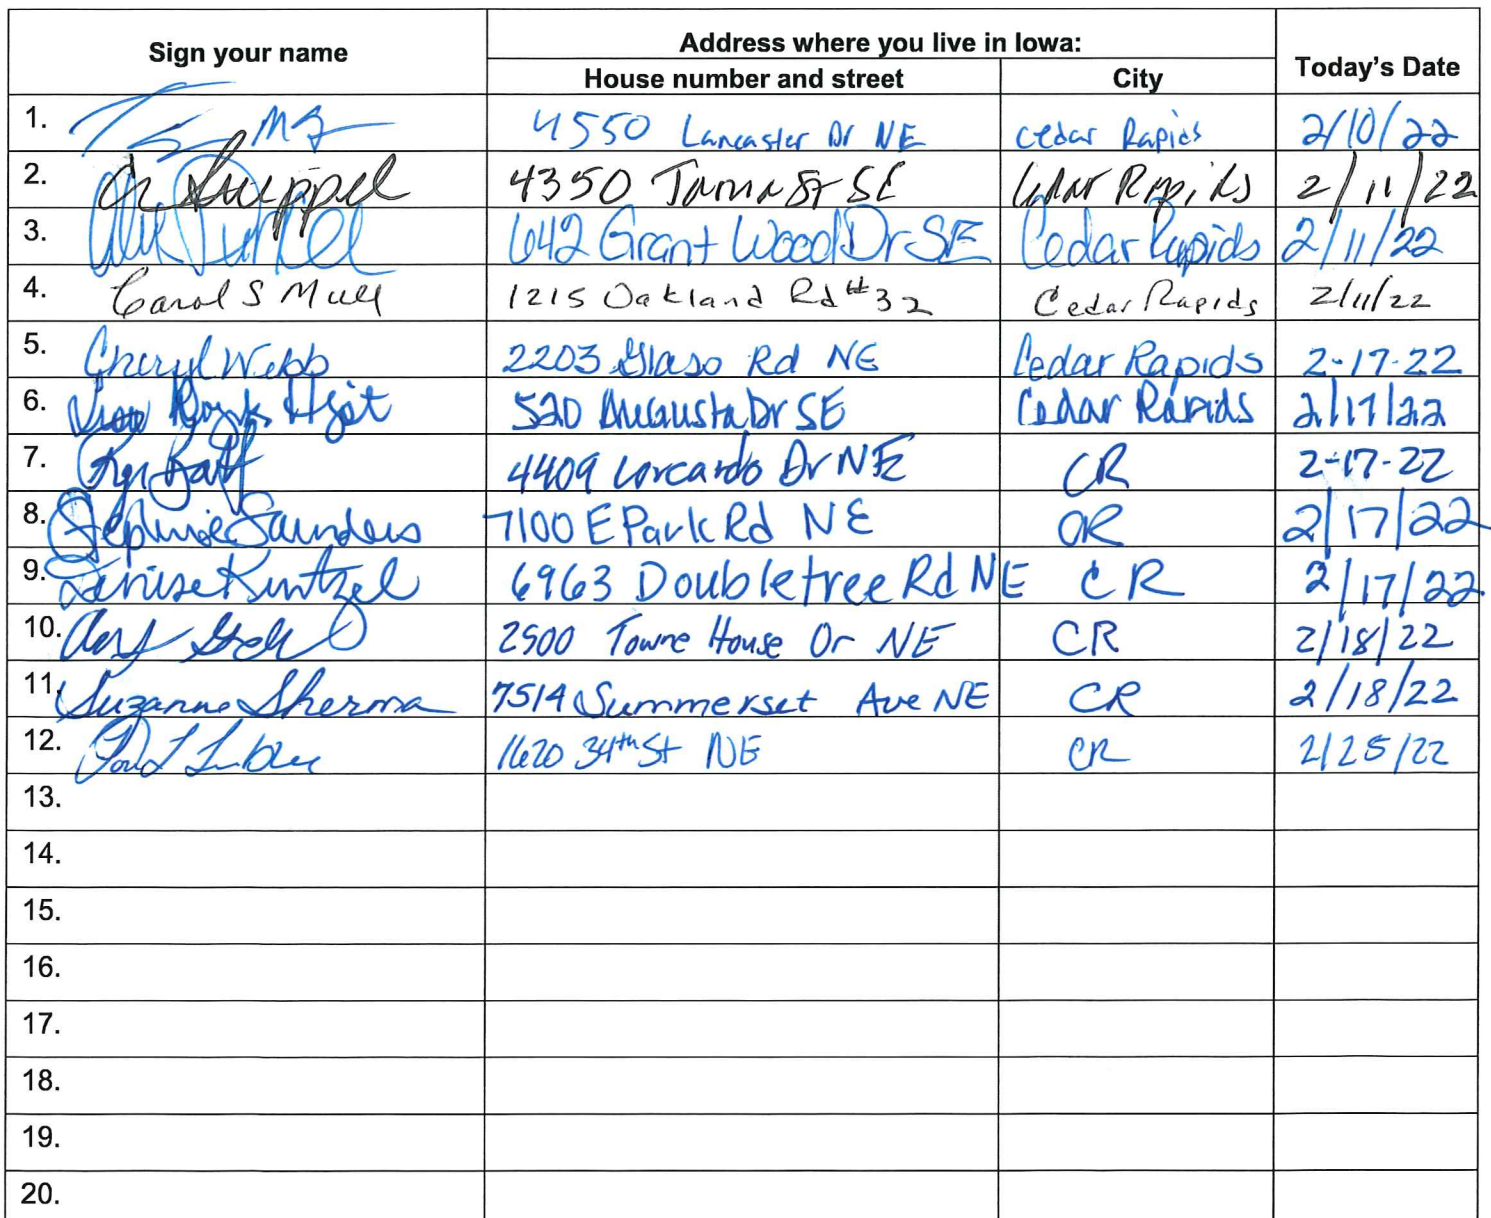 Sign your name
Address where you live in Iowa:
House number and street City Today's Date
1. 4550 Lancaster Dr NE Cedar Rapids 2/10/22
2. 4350 Tama St SE Cedar Rapids 2/11/22
3. 642 Grant Wood Dr SE Cedar Rapids 2/11/22
4. Carol S Mull 1215 Oakland Rd #32 Cedar Rapids 2/11/22
5. Cheryl Webb 2203 Glass Rd NE Cedar Rapids 2-17-22
6. 520 Augusta Dr SE Cedar Rapids 2/17/22
7. 4409 Dr NE CR 2-17-22
8. Stephanie Saunders 7100 E Park Rd NE CR 2/17/22
9. Denise Kintzel 6963 Doubletree Rd NE CR 2/17/22
10. 2500 Towne House Dr NE CR 2/18/22
11. Suzanne Sherma 7514 Summerset Ave NE CR 2/18/22
12. 1620 34th St NE CR 2/25/22
13.
14.
15.
16.
17.
18.
19.
20.